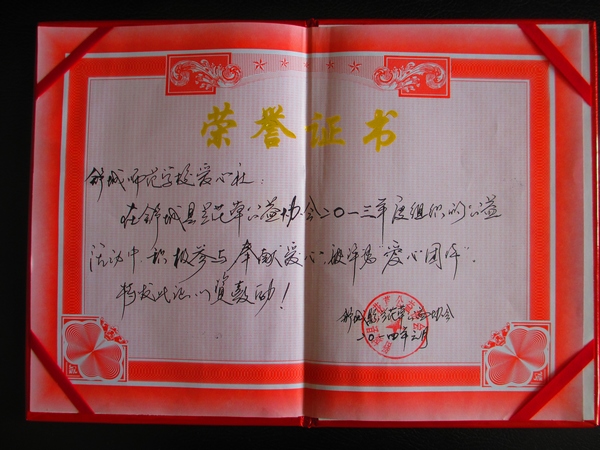 荣誉证书
舒城师范学校爱心社：
在舒城县兰花草公益协会二〇一三年度组织的公益
活动中，积极参与，奉献爱心，被评为“爱心团体”。
特发此证，以资鼓励！
舒城县兰花草公益协会
二〇一四年元月